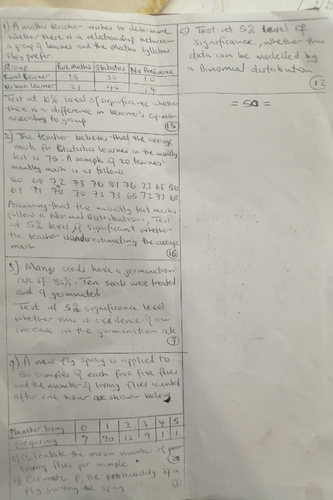 1) A maths teacher wishes to determine
whether there is a relationship between
a group of learners and the Maths Syllabus
they prefer
Group Pure Maths Statistics No Preference
Rural learner 15 35 10
Urban learner 21 14
Test at 10% level of significance whether
there is a difference in learner's opinion
according to group
(15)
2) The teacher believes that the average
mark for Statistics learner in the monthly
test is 75. A sample of 20 learners'
monthly mark is as follows
80 69 72 73 76 76 73 65 50
71 70 73 65 72 73 68
Assuming that the monthly test marks
follow a Normal Distribution, Test
at 5% level of significant whether
the teacher is the average
mark
(16)
3) Mango seeds have a germination
rate of 80%. Ten seeds were treated
and 9 germinated
Test at 5% significance level
whether this is evidence of an
increase in the germination rate
(7)
4) A new fly spray is applied to
50 samples of each five flies
and the number of living flies counted
after one hour shown below
Number living 0 1 2 3 4 5
frequency 7 20 12 9 1 1
a) Calculate the mean number of
living flies per sample
b) Estimate p, the probability of a
fly surviving the spray
c) Test at 5% level of
significance, whether the
data can be modelled by
a Binomial distribution
(12)
= 50 =